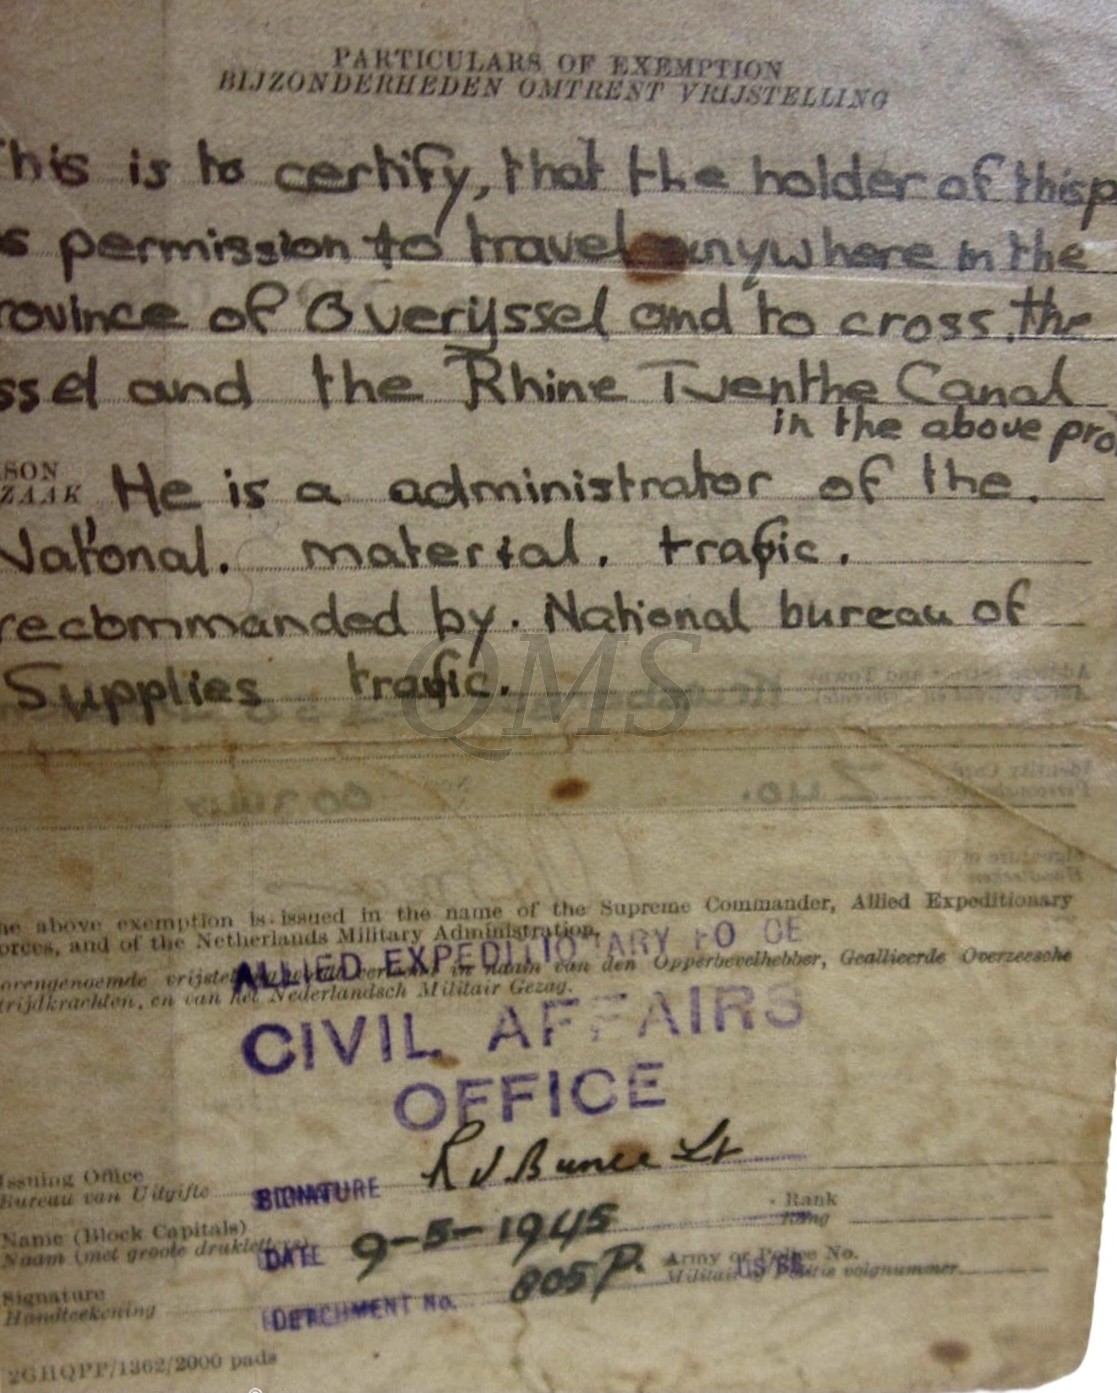 PARTICULARS OF EXEMPTION
BIJZONDERHEDEN OMTRENT VRIJSTELLING
This is to certify, that the holder of this p
s permission to travel anywhere in the
rovince of Overijssel and to cross the
ssel and the Rhine Twenthe Canal
in the above pro
SON
ZAAK He is a administrator of the.
National. material. trafic.
recommanded by. National bureau of
Supplies trafic.
QMS
he above exemption is issued in the name of the Supreme Commander, Allied Expeditionary
orces, and of the Netherlands Military Administration.
ALLIED EXPEDITIONARY FO CE
orengenoemde in naam van den Opperbevelhebber, Geallieerde Overzeesche
trijdkrachten, en van het Nederlandsch Militair Gezag.
CIVIL AFFAIRS
OFFICE
Issuing Office
Bureau van Uitgifte
SIGNATURE R J Bunce Lt
Rank
Rang
Name (Block Capitals)
Naam (met groote drukletters)
DATE 9-5-1945
Army or Police No.
Militair of Politie volgnummer
Signature
Handteekening
DETACHMENT No. 805 P.
2GHQPP/1362/2000 pads